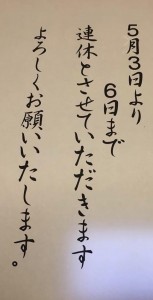 5月3日より
6日まで
連休とさせていただきます
よろしくお願いいたします。